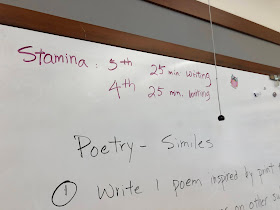 Stamina: 5th 25 min writing
4th 25 min. writing
Poetry - Similes
① Write 1 poem inspired by print
on other su